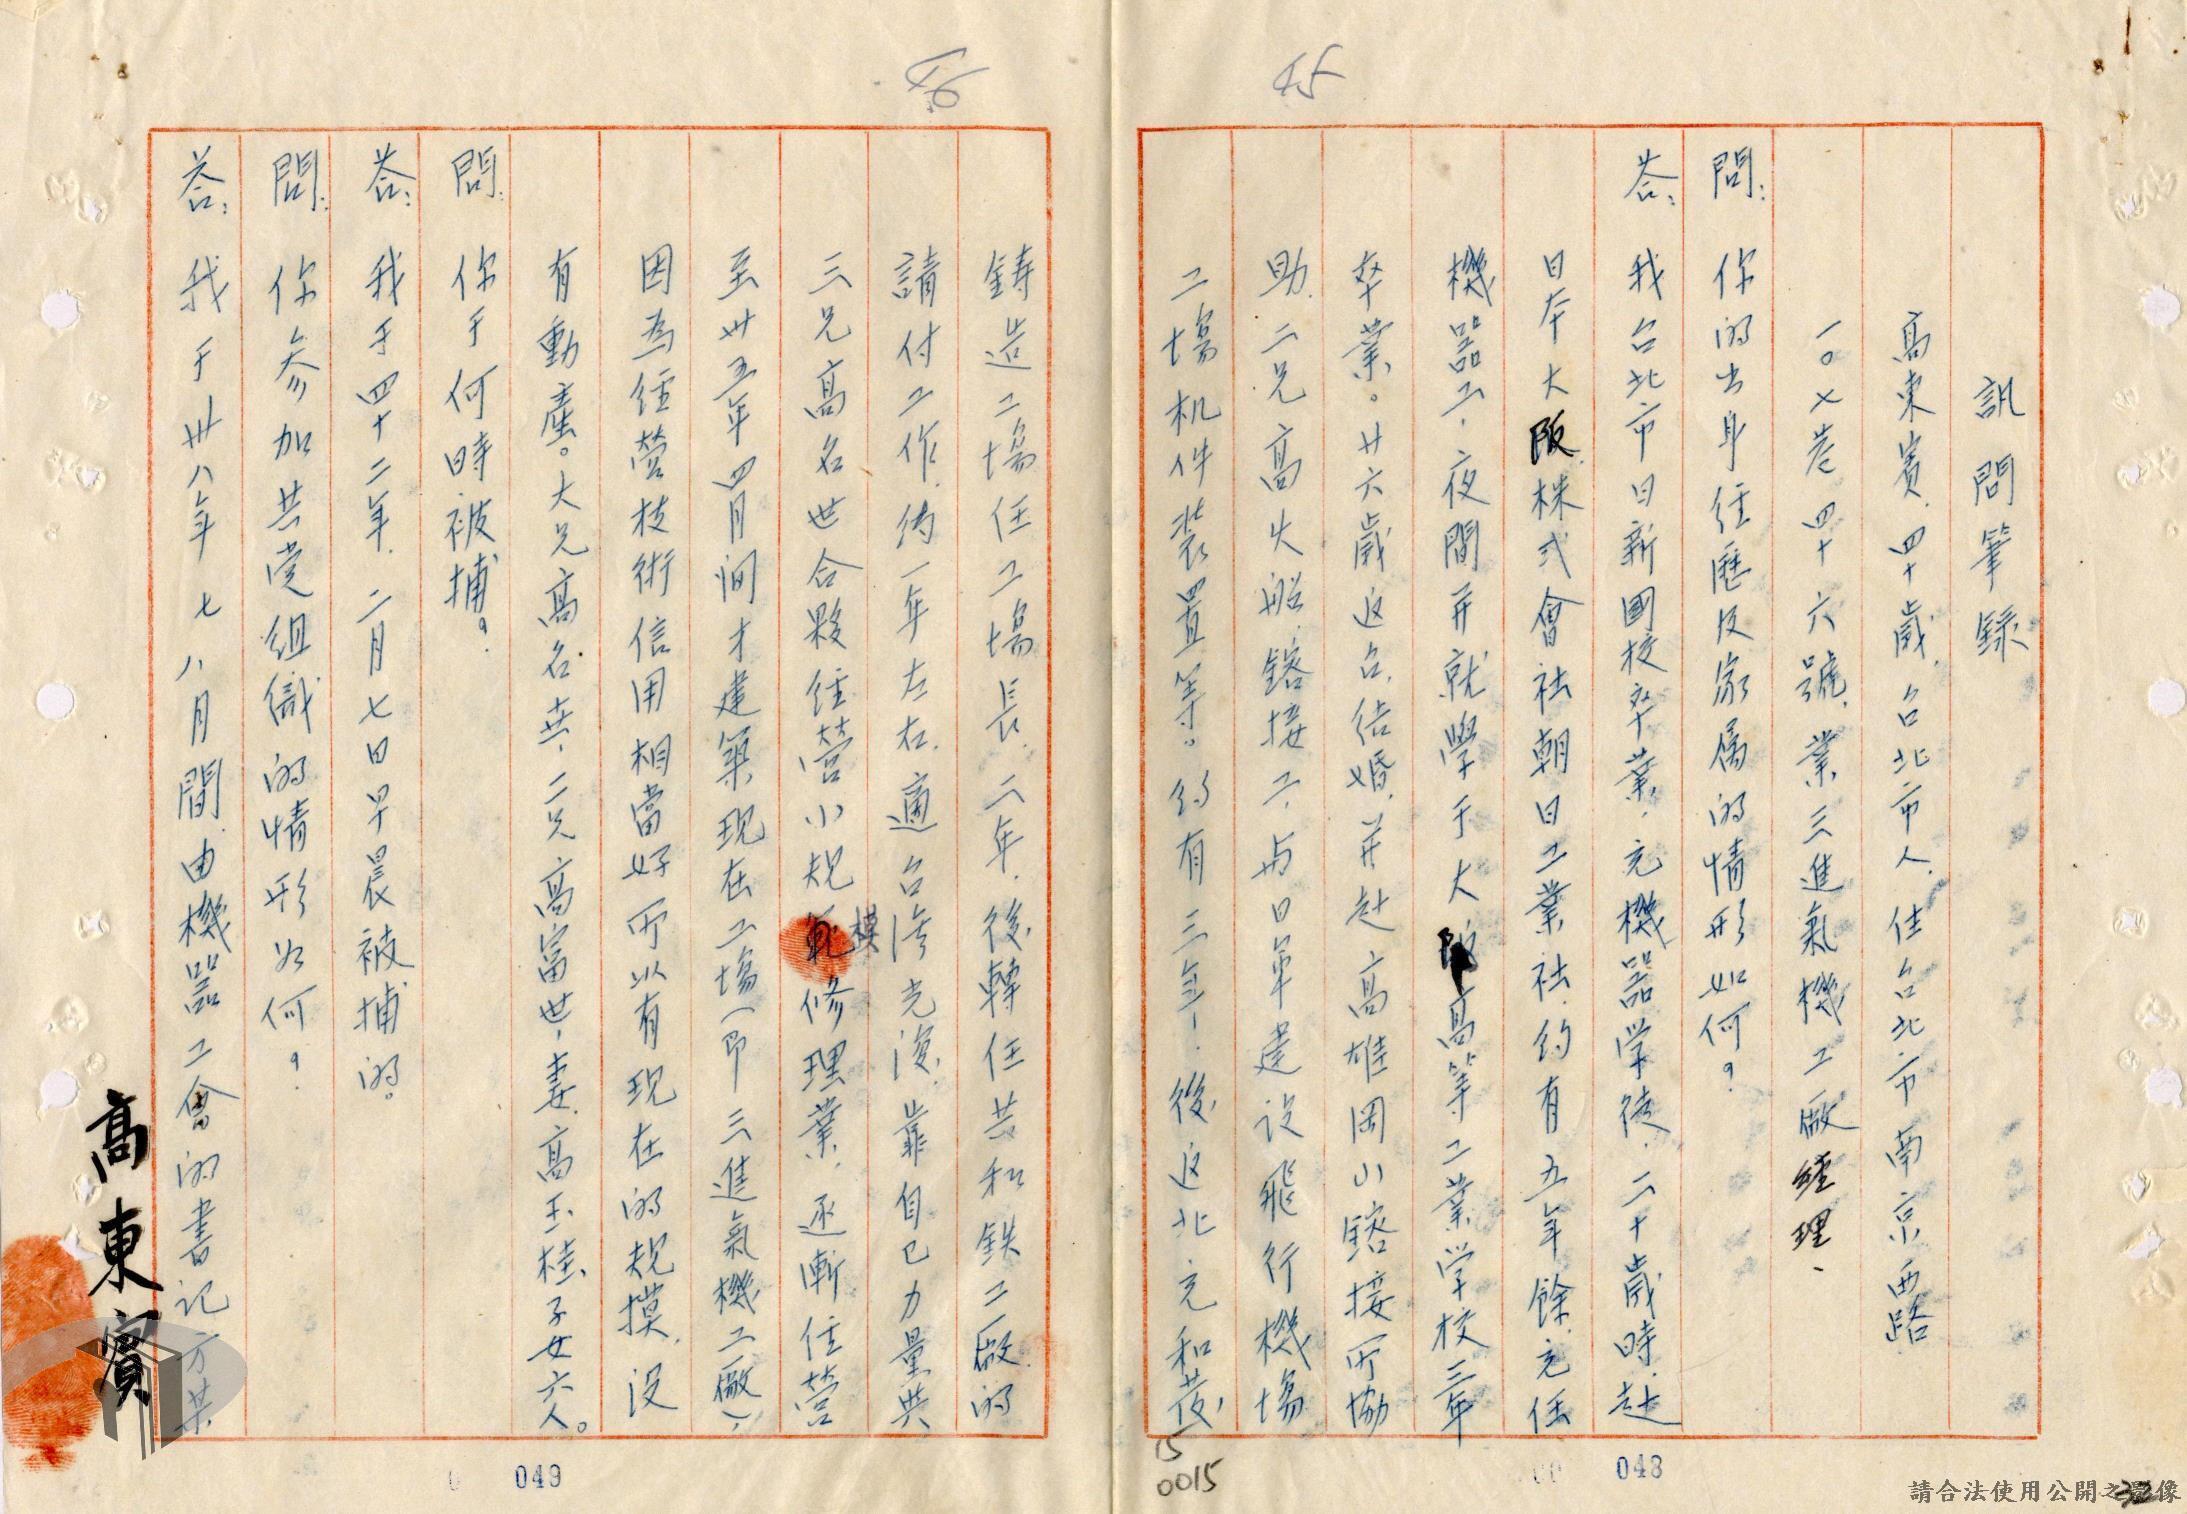 45
訊問筆錄
高東賓、四十歲、台北市人、住台北市南京西路
一〇七巷四十六號、業三進氣機工廠經理、
問：你的出身經歷及家属的情形如何？
答：我台北市日新國校卒業、充機器学徒、二十歲時、赴
日本大阪株式會社朝日工業社、約有五年餘、充任
機器工、夜間并就學于大阪高等工業学校三年
卒業。廿六歲返台、结婚、并赴高雄岡山鎔接所協
助二兄高火船、鎔接工、与日軍建设飛行機場
工場机件装置等。約有三年、後返北充和茂
15
0015
048
46
鋳造工場任工場長、二年、後轉任共和鉄工廠的
請付工作、約一年左右、適台湾光復、靠自己力量與
三兄高名世合夥经营小規範模修理業、逐漸住营
至卅五年四月间才建築現在工場（即三進氣機工廠）、
因為经营技術信用相當好所以有現在的規摸、没
有動產。大兄高名世、二兄高富世、妻高玉桂、子女六人。
問：你于何時被捕？
答：我于四十二年、二月七日早晨被捕的。
問：你参加共党组織的情形为何？
答：我于卅八年七八月間由機器工會的書记方某
高東賓
049
請合法使用公開之影像